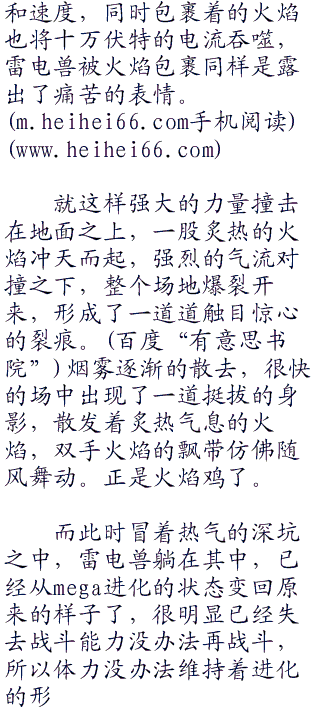 和速度，同时包裹着的火焰
也将十万伏特的电流吞噬，
雷电兽被火焰包裹同样是露
出了痛苦的表情。
(m.heihei66.com手机阅读)
(www.heihei66.com)
就这样强大的力量撞击
在地面之上，一股炙热的火
焰冲天而起，强烈的气流对
撞之下，整个场地爆裂开
来，形成了一道道触目惊心
的裂痕。(百度“有意思书
院”)烟雾逐渐的散去，很快
的场中出现了一道挺拔的身
影，散发着炙热气息的火
焰，双手火焰的飘带仿佛随
风舞动。正是火焰鸡了。
而此时冒着热气的深坑
之中，雷电兽躺在其中，已
经从mega进化的状态变回原
来的样子了，很明显已经失
去战斗能力没办法再战斗，
所以体力没办法维持着进化
的形